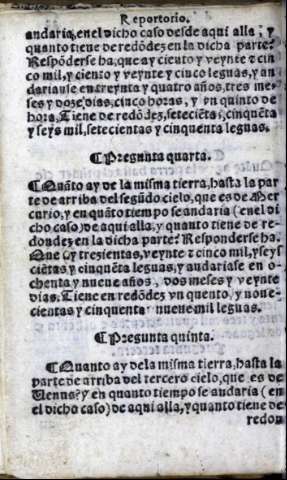 Reportorio.
andaria, en el dicho caso desde aqui alla; y
quanto tiene de redōdez en la dicha parte?
Respōderse ha, que ay ciento y veynte τ cin
co mil, y ciento y veynte y cinco leguas, y an
dariause en treynta y quatro años, tres me-
ses y doze dias, cinco horas, y vn quinto de
hora. Tiene de redōdez, setecietas, cinquēta
y seys mil, setecientas y cinquenta leguas.
¶Pregunta quarta.
¶Quāto ay de la misma tierra, hasta la par
te de arriba del segūdo cielo, que es de Mer
curio, y en quāto tiempo se andaria (en el di
cho caso) de aqui alla, y quanto tiene de re-
dondez en la dicha parte? Responderse ha.
Que ay trezientas, veynte τ cinco mil, y seys
ciētas y cinquēta leguas, y andariase en o-
chenta y nueue años, dos meses y veynte
dias. Tiene en redōdez vn quento, y noue-
cientas y cinquenta nueue mil leguas.
¶Pregunta quinta.
¶Quanto ay de la misma tierra, hasta la
parte de arriba del tercero cielo, que es de
Uenus? y en quanto tiempo se andaria (en
el dicho caso) de aqui alla, y quanto tiene de
redon